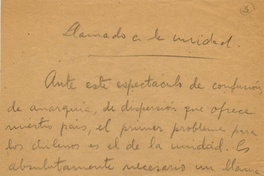 3
Llamado a la unidad.
Ante este espectáculo de confusión,
de anarquía, de dispersión que ofrece
nuestro país, el primer problema para
los chilenos es el de la unidad. Es
absolutamente necesario un llama